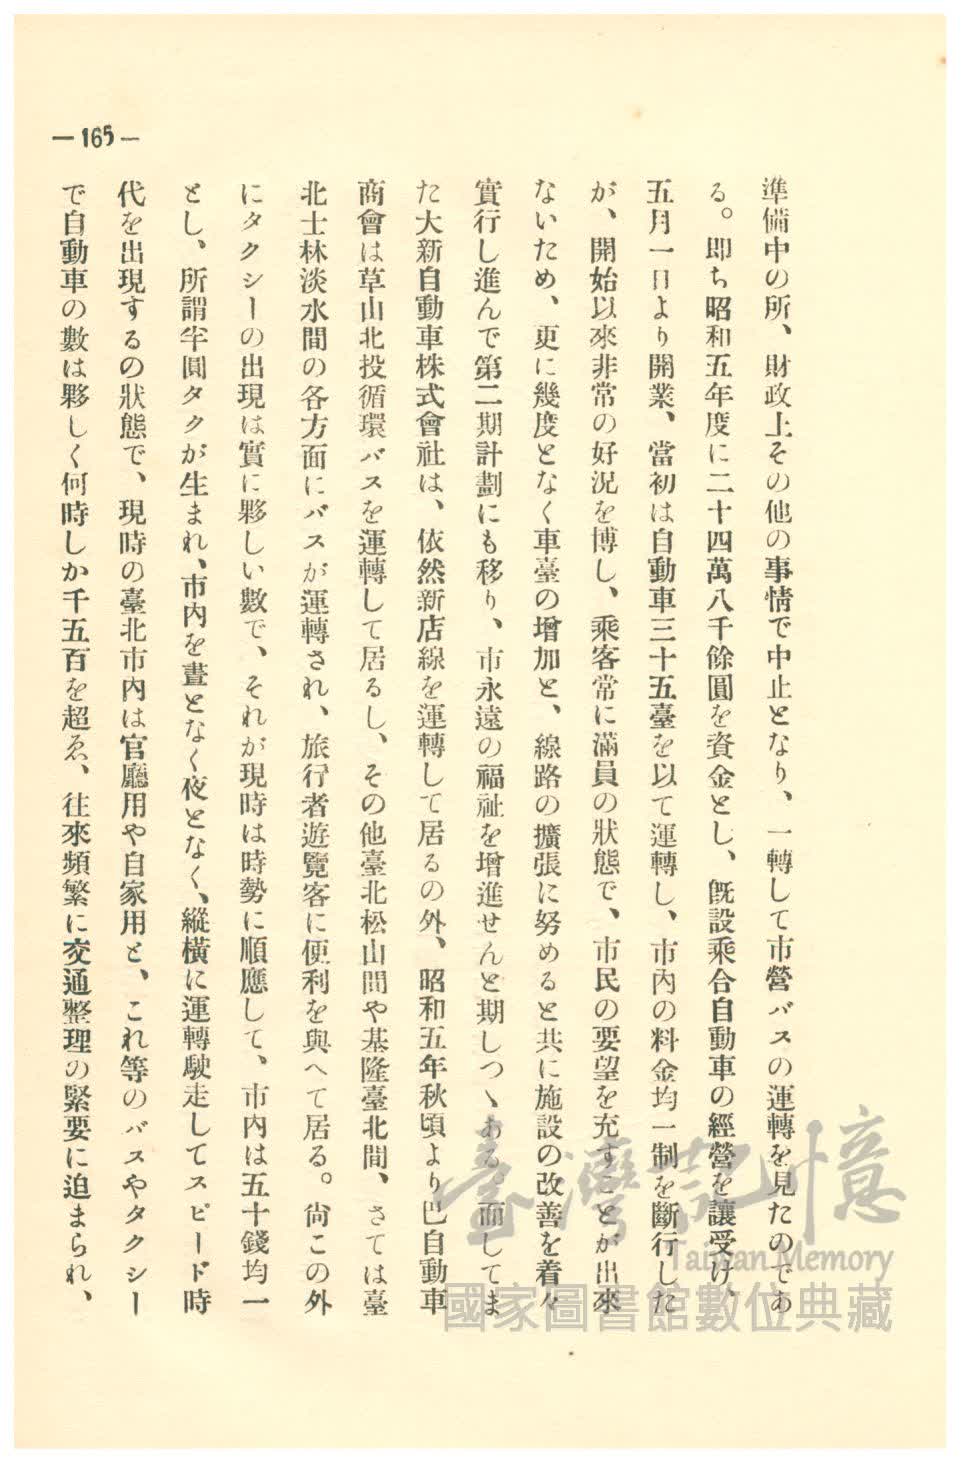 —165—
準備中の所、財政上その他の事情で中止となり、一轉して市營バスの運轉を見たのであ
る。卽ち昭和五年度に二十四萬八千餘圓を資金とし、旣設乘合自動車の經營を讓受け、
五月一日より開業、當初は自動車三十五臺を以て運轉し、市內の料金均一制を斷行した
が、開始以來非常の好況を博し、乘客常に滿員の狀態で、市民の要望を充すことが出來
ないため、更に幾度となく車臺の增加と、線路の擴張に努めると共に施設の改善を着々
實行し進んで第二期計劃にも移り、市永遠の福祉を增進せんと期しつゝある。而してま
た大新自動車株式會社は、依然新店線を運轉して居るの外、昭和五年秋頃より巴自動車
商會は草山北投循環バスを運轉して居るし、その他臺北松山間や基隆臺北間、さては臺
北士林淡水間の各方面にバスが運轉され、旅行者遊覽客に便利を與へて居る。尙この外
にタクシーの出現は實に夥しい數で、それが現時は時勢に順應して、市內は五十錢均一
とし、所謂半圓タクが生まれ、市內を晝となく夜となく、縱橫に運轉駛走してスピード時
代を出現するの狀態で、現時の臺北市內は官廳用や自家用と、これ等のバスやタクシー
で自動車の數は夥しく何時しか千五百を超ゑ、往來頻繁に交通整理の緊要に迫まられ、
臺灣記憶
Taiwan Memory
國家圖書館數位典藏